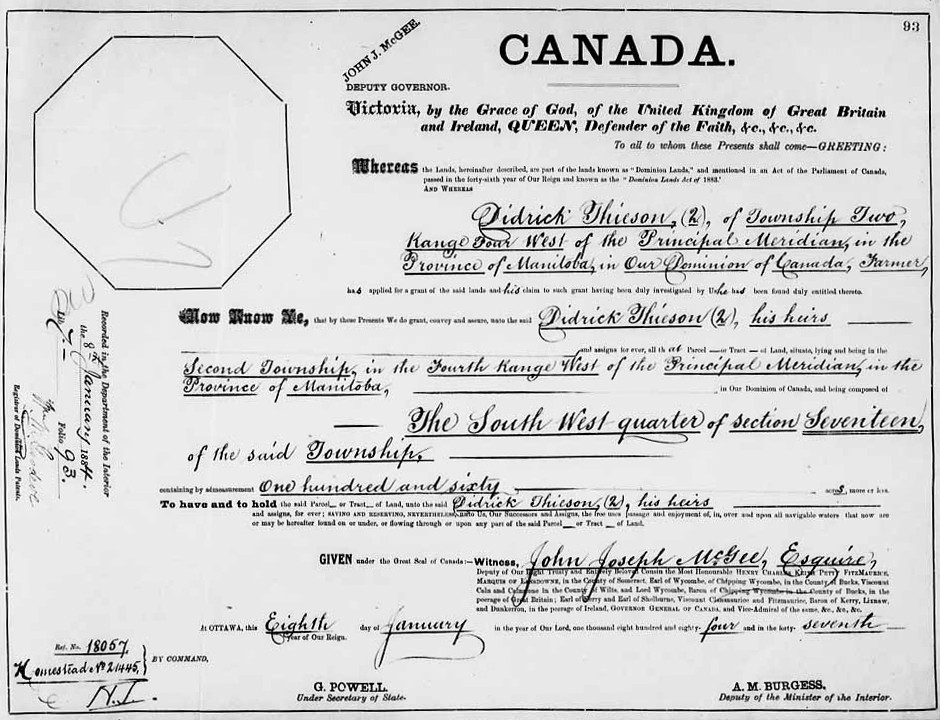 93
JOHN J. McGEE.
DEPUTY GOVERNOR.
CANADA.
Victoria, by the Grace of God, of the United Kingdom of Great Britain
and Ireland, QUEEN, Defender of the Faith, &c., &c., &c.
To all to whom these Presents shall come—GREETING:
Whereas the Lands, hereinafter described, are part of the lands known as "Dominion Lands," and mentioned in an Act of the Parliament of Canada,
passed in the forty-sixth year of Our Reign and known as the "Dominion Lands Act of 1883."
AND WHEREAS
Didrick Thieson, (2), of Township Two,
Range Four West of the Principal Meridian, in the
Province of Manitoba, in Our Dominion of Canada, Farmer,
has applied for a grant of the said lands and his claim to such grant having been duly investigated by Us he has been found duly entitled thereto.
Now Know Ye, that by these Presents We do grant, convey and assure, unto the said Didrick Thieson (2), his heirs
and assigns for ever, all that Parcel — or Tract — of Land, situate, lying and being in the
Second Township, in the Fourth Range West of the Principal Meridian, in the
Province of Manitoba, in Our Dominion of Canada, and being composed of
The South West quarter of section Seventeen,
of the said Township,
containing by admeasurement One hundred and sixty acres, more or less.
To have and to hold the said Parcel or Tract of Land, unto the said Didrick Thieson, (2), his heirs
and assigns, for ever; SAVING AND RESERVING, NEVERTHELESS, unto Us, Our Successors and Assigns, the free uses passage and enjoyment of, in, over and upon all navigable waters that now are
or may be hereafter found on or under, or flowing through or upon any part of the said Parcel or Tract of Land.
GIVEN under the Great Seal of Canada:—Witness, John Joseph McGee, Esquire,
Deputy of Our Right Trusty and Entirely Beloved Cousin the Most Honourable HENRY CHARLES KEITH PETTY FITZMAURICE,
MARQUIS OF LANSDOWNE, in the County of Somerset, Earl of Wycombe, of Chipping Wycombe, in the County of Bucks, Viscount
Caln and Calnstone in the County of Wilts, and Lord Wycombe, Baron of Chipping Wycombe in the County of Bucks, in the
peerage of Great Britain; Earl of Kerry and Earl of Shelburne, Viscount Clanmaurice and Fitzmaurice, Baron of Kerry, Lixnaw,
and Dunkerron, in the peerage of Ireland, GOVERNOR GENERAL OF CANADA, and Vice-Admiral of the same, &c., &c., &c.
At OTTAWA, this Eighth day of January in the year of Our Lord, one thousand eight hundred and eighty-four and in the forty-seventh
year of Our Reign.
Ref. No. 18057
Homestead No. 21445,
BY COMMAND,
G. POWELL.
Under Secretary of State.
A. M. BURGESS.
Deputy of the Minister of the Interior.
Recorded in the Department of the Interior
the 8th January 1884.
Folio 93.
Registrar of Dominion Lands Patents.